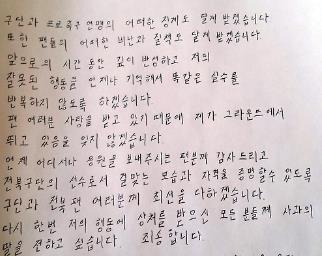 구단과 프로축구 연맹의 어떠한 징계도 달게 받겠습니다
또한 팬들의 어떠한 비난과 질책도 달게 받겠습니다.
앞으로의 시간 동안 깊이 반성하고 저의
잘못된 행동을 언제나 기억해서 똑같은 실수를
반복하지 않도록 하겠습니다.
팬 여러분 사랑을 받고 있기 때문에 제가 그라운드에서
뛰고 있음을 잊지 않겠습니다.
언제 어디서나 응원을 보내주시는 팬분께 감사드리고
전북구단의 선수로서 걸맞는 모습과 자격을 증명할수 있도록
구단과 전북팬 여러분께 최선을 다하겠습니다.
다시 한번 저의 행동에 상처를 받으신 모든분들께 사과의
말을 전하고 싶습니다. 죄송합니다.